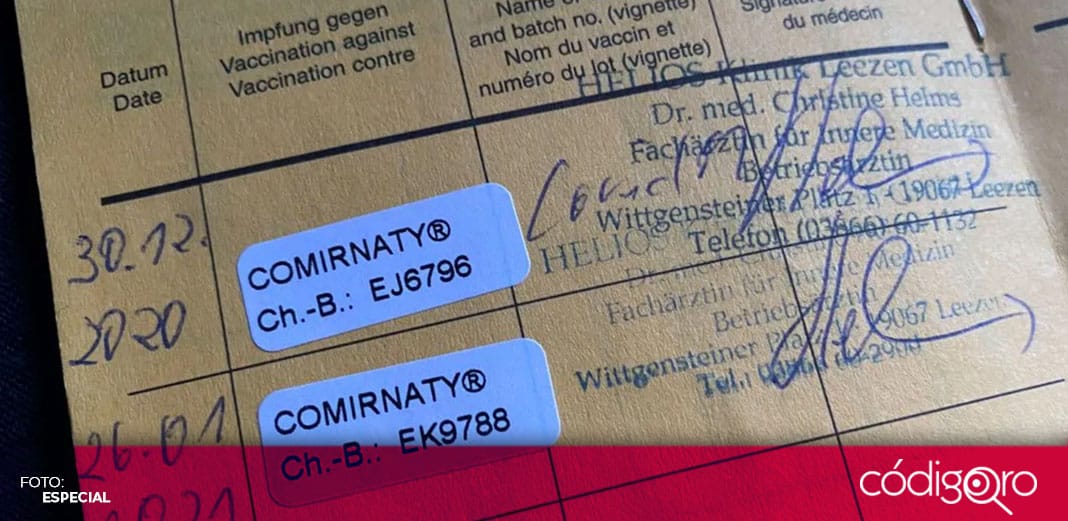 Datum
Date
Impfung gegen
Vaccination against
Vaccination contre
Name
and batch no. (vignette)
Nom du vaccin et
numéro du lot (vignette)
du médecin
30.12.
2020
COMIRNATY®
Ch.-B.: EJ6796
Covid
HELIOS Klinik Leezen GmbH
Dr. med. Christine Helms
Fachärztin für Innere Medizin
Betriebsärztin
Wittgensteiner Platz 1 · 19067 Leezen
Telefon (03866) 60-1132
26.01
2021
COMIRNATY®
Ch.-B.: EK9788
HELIOS
Fachärztin für Innere Medizin
Betriebsärztin
Wittgensteiner Platz 19067 Leezen
Tel.:
FOTO:
ESPECIAL
códigoqro